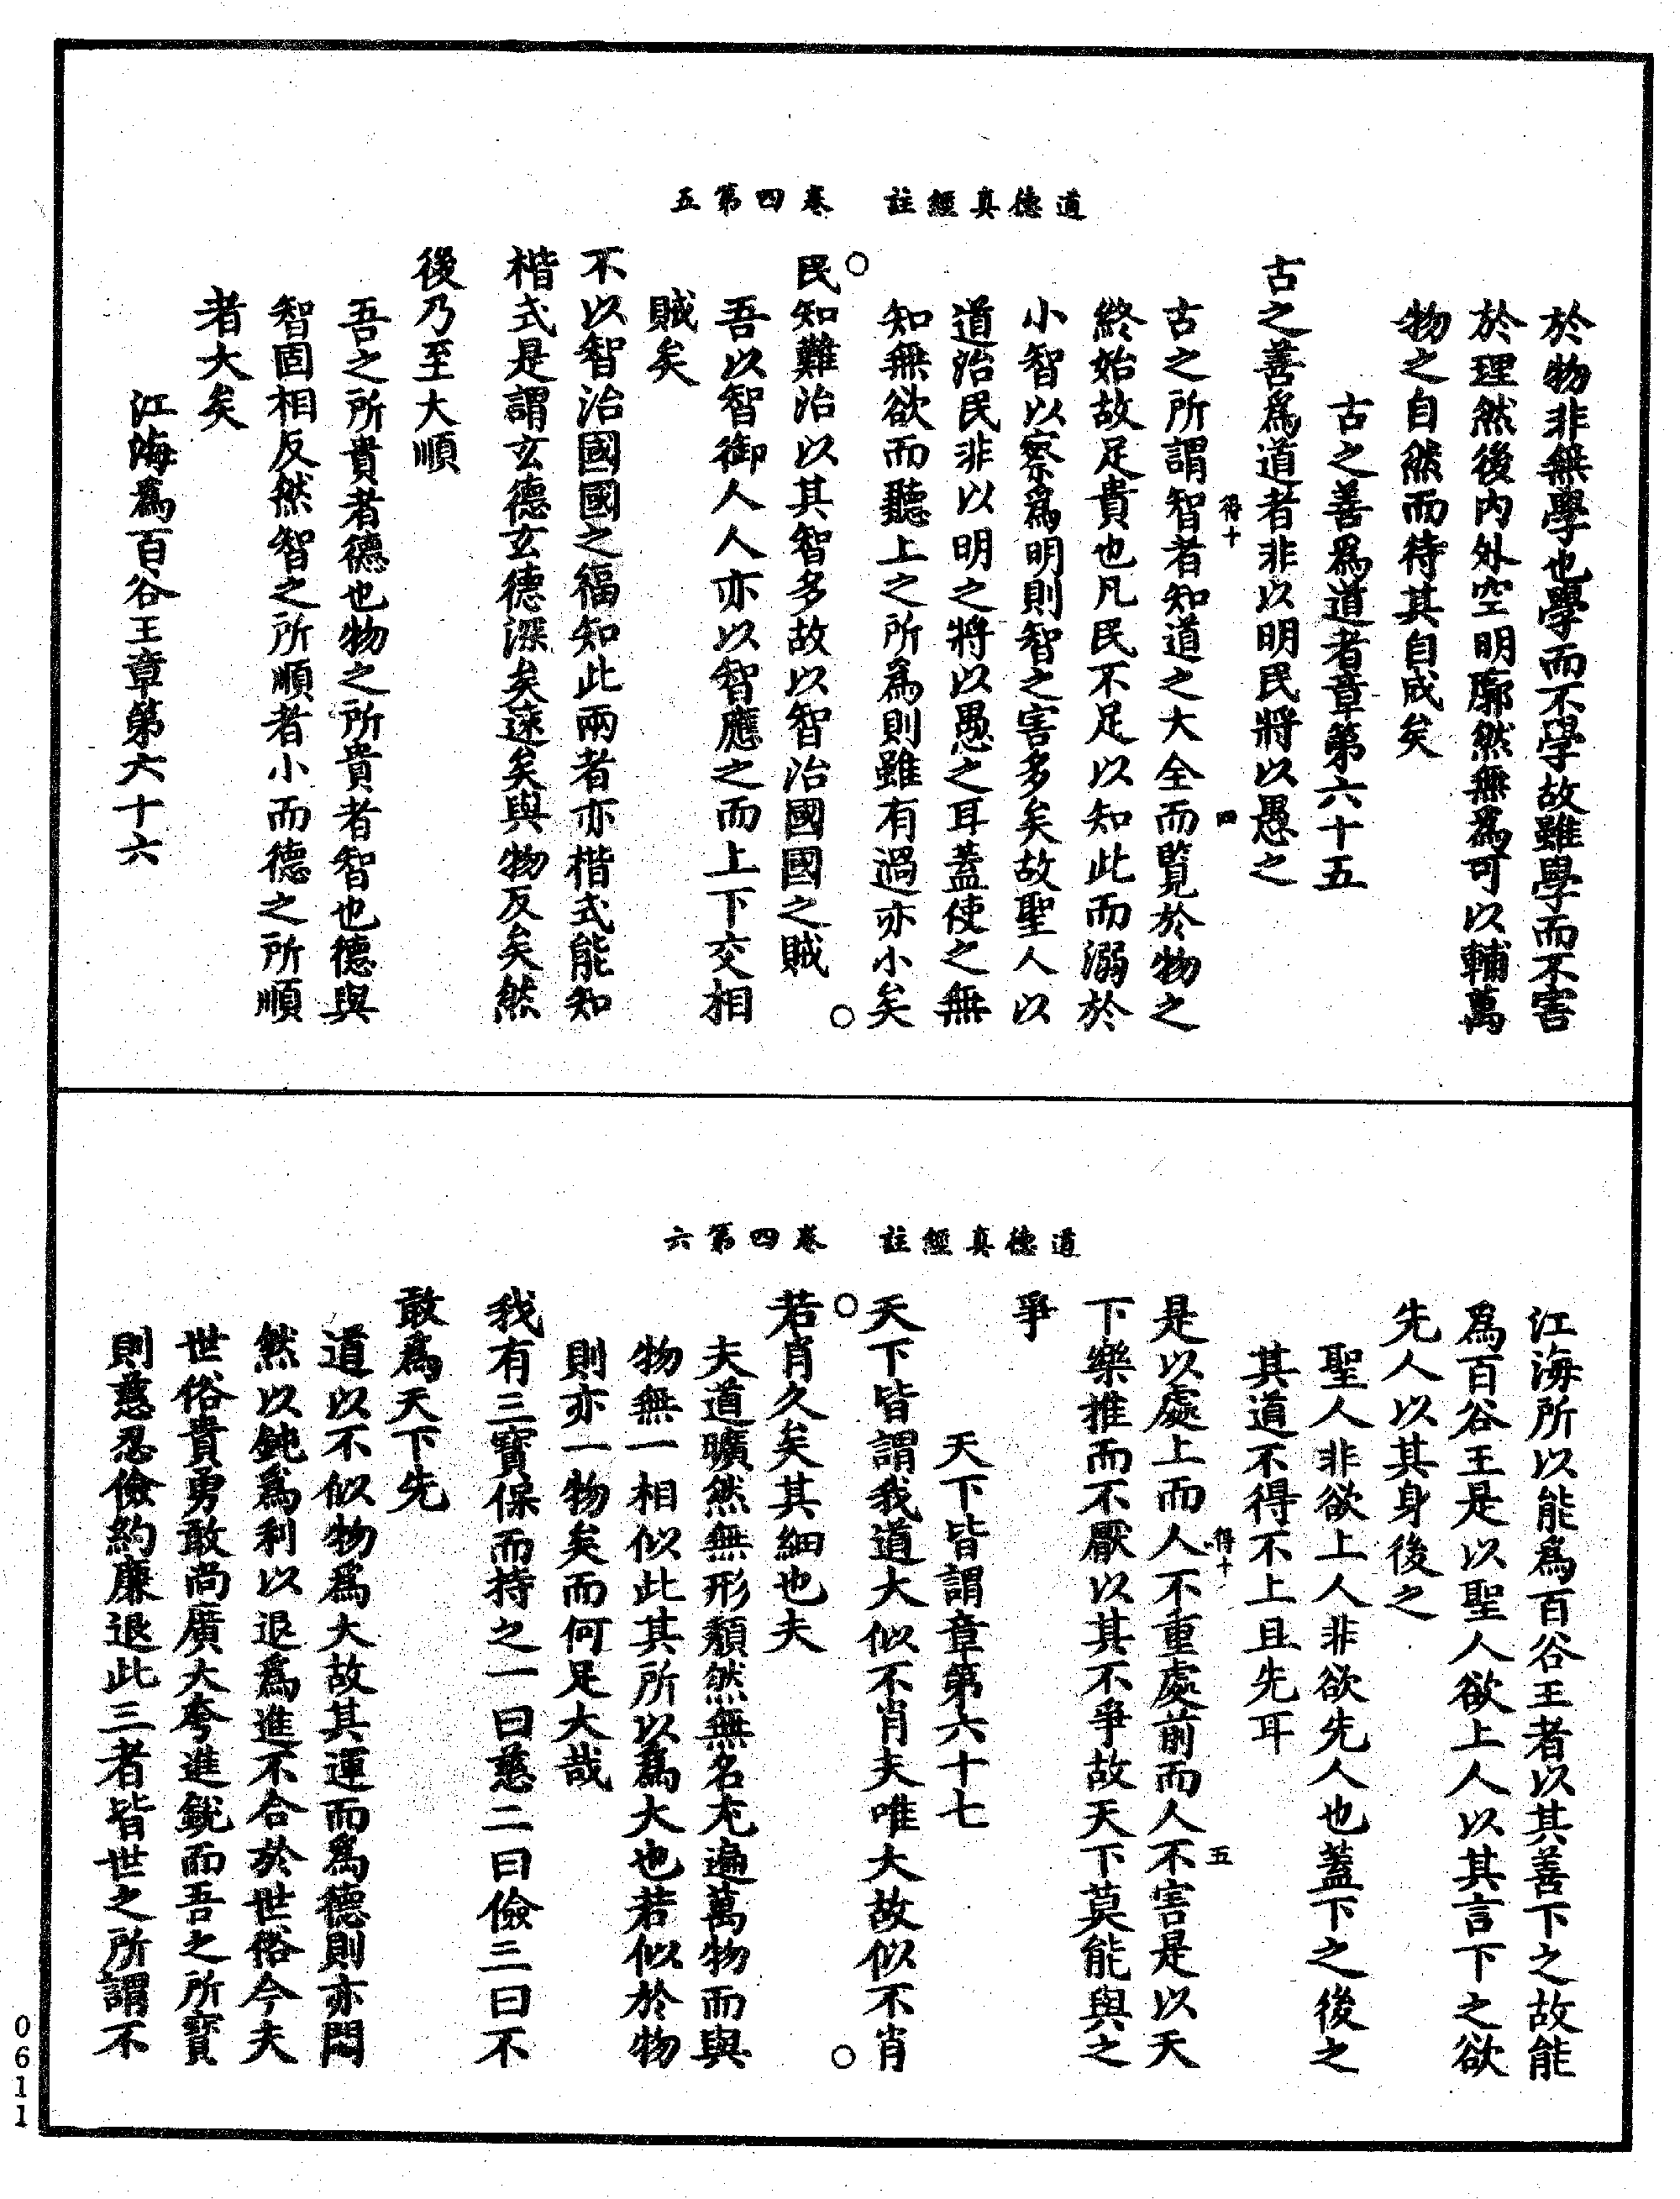 道德真經註　卷四第五
於物非無學也學而不學故雖學而不害
於理然後內外空明廓然無為可以輔萬
物之自然而待其自成矣
古之善為道者章第六十五
古之善為道者非以明民將以愚之
得十　四
古之所謂智者知道之大全而覽於物之
終始故足貴也凡民不足以知此而溺於
小智以察為明則智之害多矣故聖人以
道治民非以明之將以愚之耳蓋使之無
知無欲而聽上之所為則雖有過亦小矣
民知難治以其智多故以智治國國之賊
吾以智御人人亦以智應之而上下交相
賊矣
不以智治國國之福知此兩者亦楷式能知
楷式是謂玄德玄德深矣遠矣與物反矣然
後乃至大順
吾之所貴者德也物之所貴者智也德與
智固相反然智之所順者小而德之所順
者大矣
江海為百谷王章第六十六
道德真經註　卷四第六
江海所以能為百谷王者以其善下之故能
為百谷王是以聖人欲上人以其言下之欲
先人以其身後之
聖人非欲上人非欲先人也蓋下之後之
其道不得不上且先耳
得十　五
是以處上而人不重處前而人不害是以天
下樂推而不厭以其不爭故天下莫能與之
爭
天下皆謂章第六十七
天下皆謂我道大似不肖夫唯大故似不肖
若肖久矣其細也夫
夫道曠然無形頹然無名充遍萬物而與
物無一相似此其所以為大也若似於物
則亦一物矣而何足大哉
我有三寶保而持之一曰慈二曰儉三曰不
敢為天下先
道以不似物為大故其運而為德則亦悶
然以鈍為利以退為進不合於世俗今夫
世俗貴勇敢尚廣大夸進銳而吾之所寶
則慈忍儉約廉退此三者皆世之所謂不
0611